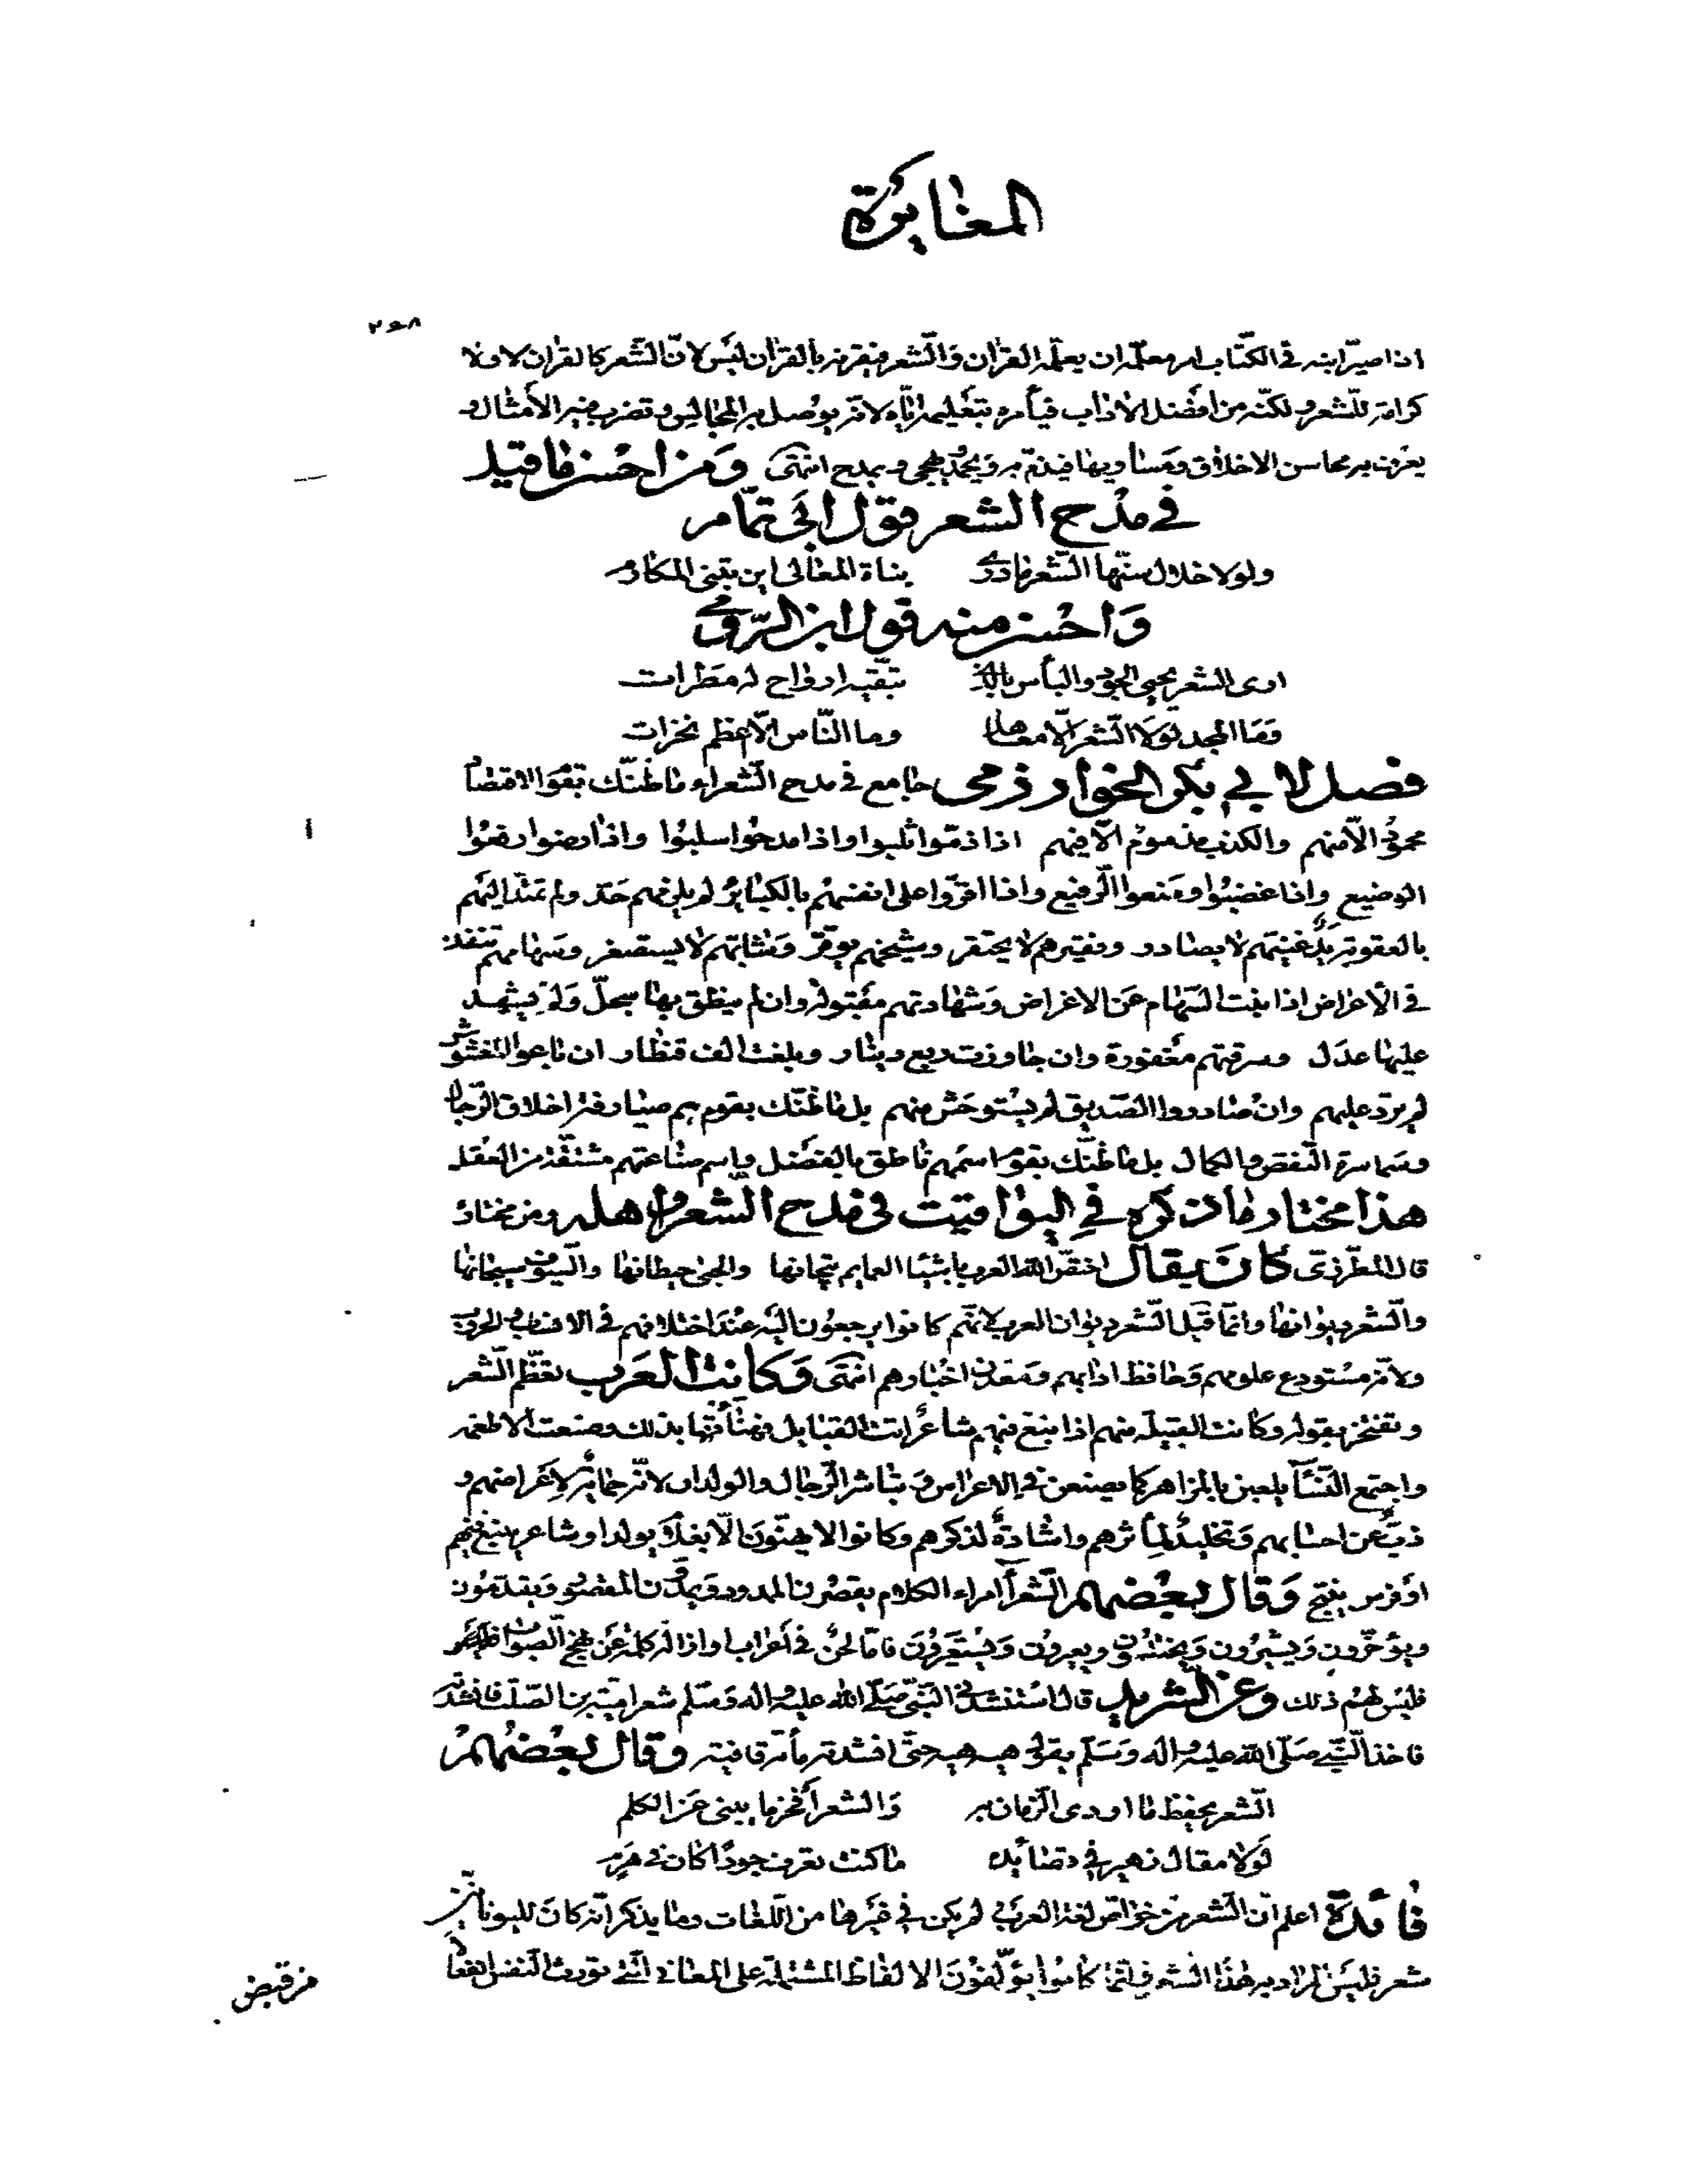 المغايرة
٢٥٨
اذا صيّر ابنه في الكتّاب امر معلّمه ان يعلّمه القران والشّعر فيقرنه بالقران ليس لانّ الشّعر كالقران لا ولا
كرامة للشّعر ولكنّه من افضل الاداب فيأمره بتعليمه ايّاه لانّه يوصل به المجالس وتضرب فيه الأمثال و
يعرف به محاسن الاخلاق ومساويها فيذمّ به ويحمد ويهجى ويمدح انتهى ومن احسن ما قيل
في مدح الشعر قول ابي تمّام
ولولا خلال سنّها الشّعر ما درى بناة المعالى اين تبنى المكارم
واحسن منه قول ابن الرّومي
ارى الشعر يحيي الجود والبأس بالّذي تبقّيه ارواح له عطرات
فما المجد لولا الشّعر الّا معاهد وما النّاس الّا اعظم نخرات
فصل لابي بكر الخوارزمى جامع في مدح الشّعراء ما ظنّك بقوم الاقتصاد
محمود الّا منهم والكذب مذموم الّا فيهم اذا ذمّوا ثلبوا واذا مدحوا سلبوا واذا رضوا رفعوا
الوضيع واذا غضبوا وضعوا الرفيع واذا اقرّوا على انفسهم بالكبائر لم يلزمهم حد ولم تمتد اليهم
بالعقوبة يد غنيّهم لا يصادر وفقيرهم لا يحتقر وشيخهم يوقر وشابهم لا يستصغر وسهامهم تنفذ
في الأعراض اذا نبت السّهام عن الاغراض وشهادتهم مقبولة وان لم ينطق بها سجلّ ولم يشهد
عليها عدل وسرقتهم مغفورة وان جاوزت ربع دينار وبلغت الف قنطار ان باعوا المغشوش
لم يردّ عليهم وان صادروا الصّديق لم يستوحش منهم بل ما ظنّك بقوم هم صيارفة اخلاق الرّجال
وسماسرة النّقص والكمال بل ما ظنّك بقوم اسمهم ناطق بالفضل واسم صناعتهم مشتقّة من العقل
هذا مختار ما ذكره في اليواقيت في مدح الشعر واهله ومن مختار
قال المطرّزى كان يقال اختصّ الله العرب باشيا العمايم تيجانها والحبى حيطانها والسّيوف سيجانها
والشّعر ديوانها وانّما قيل الشّعر ديوان العرب لانّهم كانوا يرجعون اليه عند اختلافهم في الانساب والحروب
ولانّه مستودع علومهم وحافظ ادابهم ومعدن اخبارهم انتهى وكانت العرب تعظّم الشّعر
وتفتخر بقوله وكانت القبيلة منهم اذا نبغ فيهم شاعر اتت القبايل فهنأتها بذلك وصنعت الاطعمه
واجتمع النّسآ يلعبن بالمزاهر كما يصنعن في الاعراس وتباشر الرّجال والولدان لانّه حماية لأعراضهم و
ذبّ عن احسابهم وتخليد لمآثرهم واشادة لذكرهم وكانوا لا يهنّون الّا بغلام يولد او شاعر ينبغ فيهم
أو فرس ينتج وقال بعضهم الشّعرآ امراء الكلام يقصرون الممدود ويمدّون المقصور ويقدّمون
ويؤخّرون ويشيرون ويختلسون ويعيرون ويستعيرون فامّا لحن في اعراب او ازالة كلمة عن نهج الصّواب
فليس لهم ذلك وعن الشريد قال استنشدني النّبىّ صلّى الله عليه واله وسلّم شعر اميّة بن الصّلت فانشدته
فاخذ النّبي صلّى الله عليه واله وسلّم يقول هيه هيه حتّى انشدته مأئة قافية وقال بعضهم
الشّعر يحفظ ما اودى الزمان به والشعر أفخر ما يبنى عن الكلم
لولا مقال زهير في قصائده ما كنت تعرف جودا كان في هرم
فائدة اعلم انّ الشّعر من خواصّ لغة العرب لم يكن في غيرها من اللّغات وما يذكر انّه كان لليونانيّين
شعر فليس المراد به هذا الشّعر فانّما كانوا يؤلّفون الالفاظ المشتملة على المعاني الّتي تورث النّفس انفعالا
من قبض